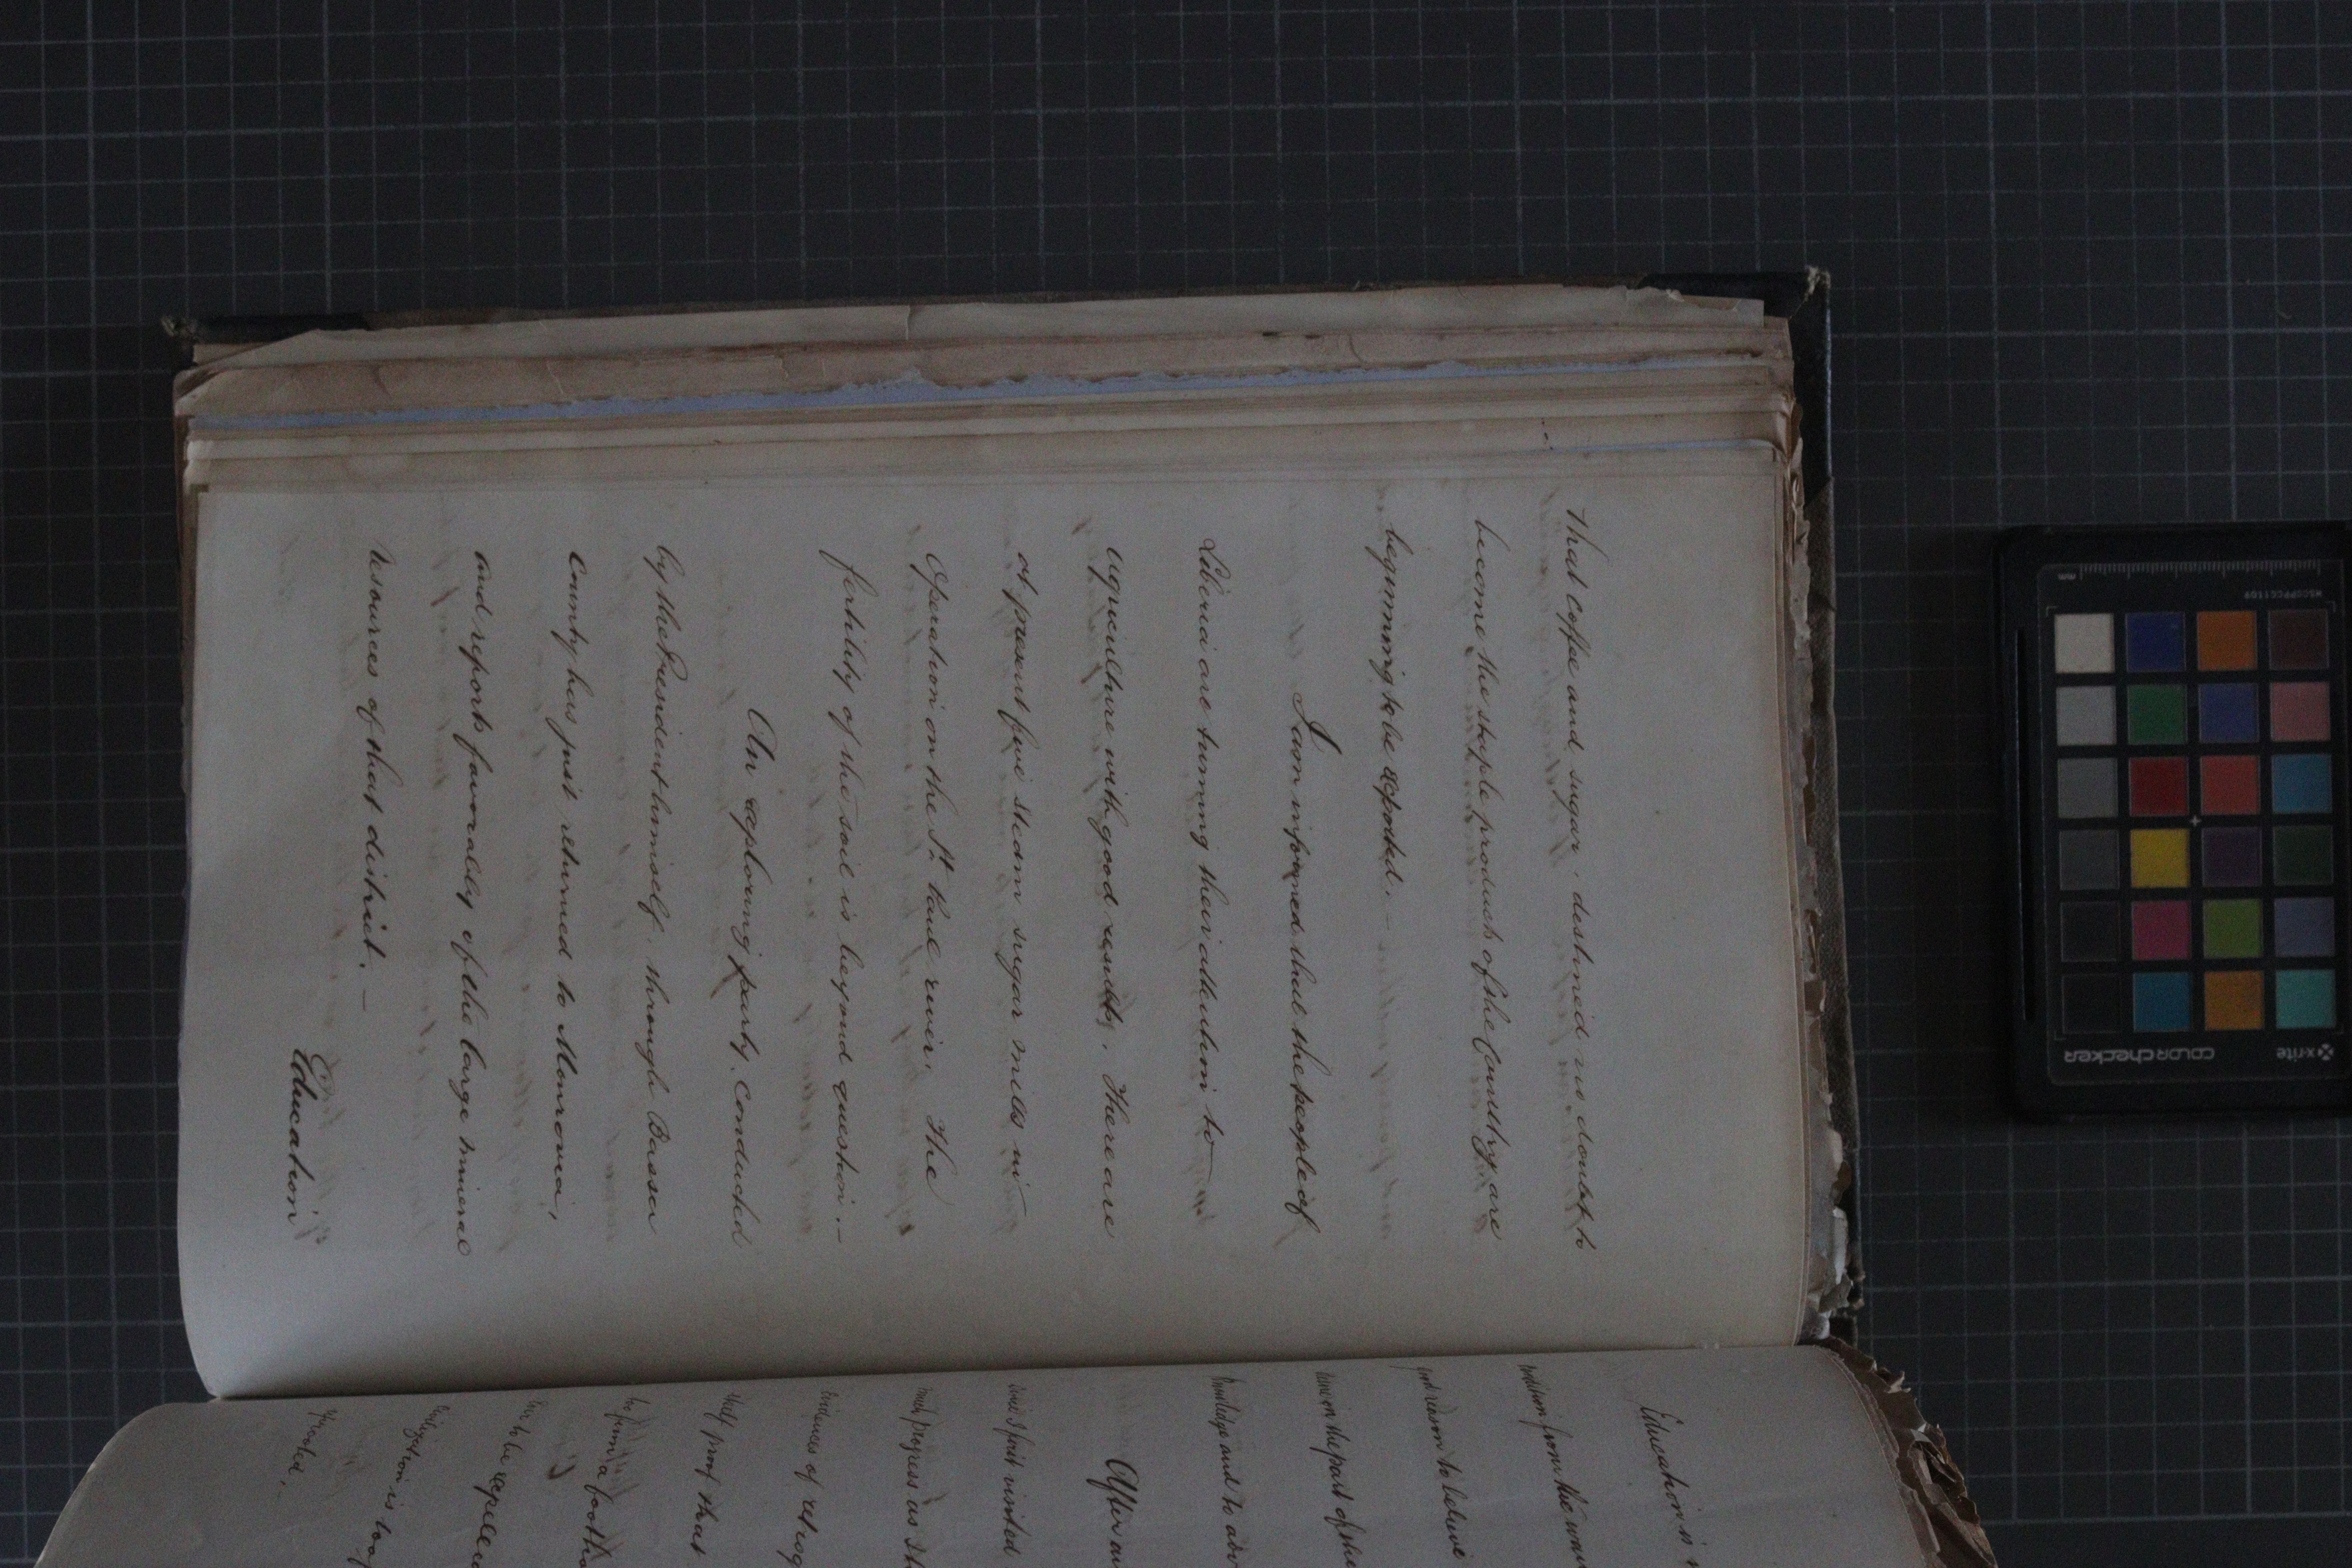 that coffee and sugar, destined no doubt to
become the staple products of the Country, are
beginning to be exported. —
I am informed that the people of
Liberia are turning their attention to
agriculture with good results. There are
at present five steam sugar mills in
operation on the St. Paul river. The
fertility of the soil is beyond question. —
An exploring party, conducted
by the President himself, through Bassa
County has just returned to Monrovia,
and reports favorably of the large mineral
resources of that district. —
Education
Education is
from the
good reason to believe
on the part of the
knowledge and to
After
since I first visited
much progress as
evidences of
that
to form a
to be
is
uprooted. —
x-rite
colorchecker
MSCCPPCC1109
mm